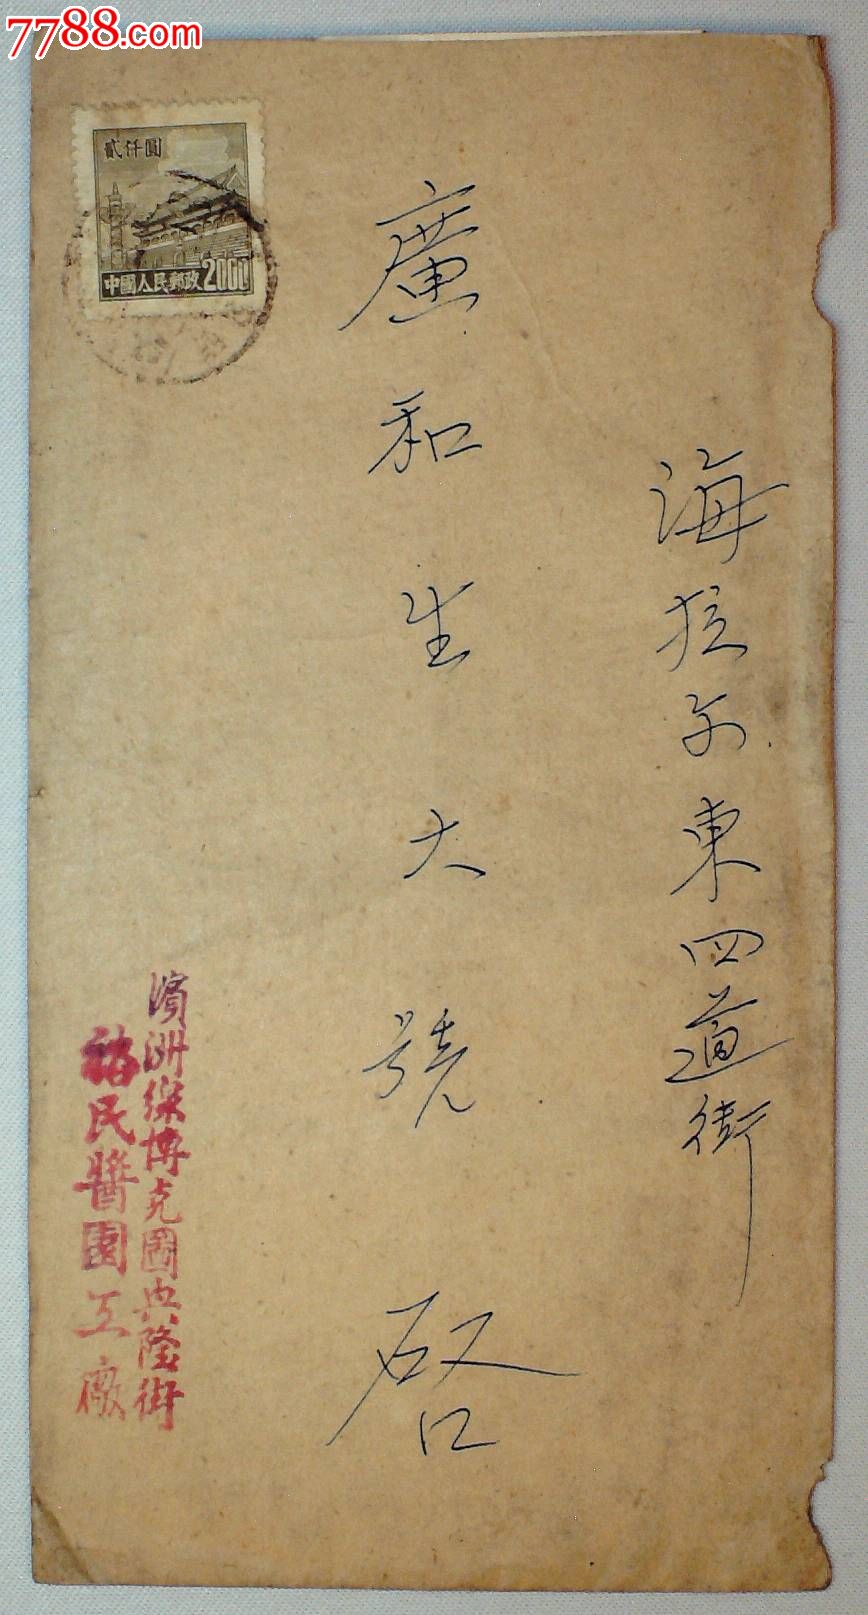 7788.com
海拉尔東四道街
廣和生大號
啓
貳仟圓
中國人民郵政2000
濱洲綫博克圖興隆街
民醬園工廠